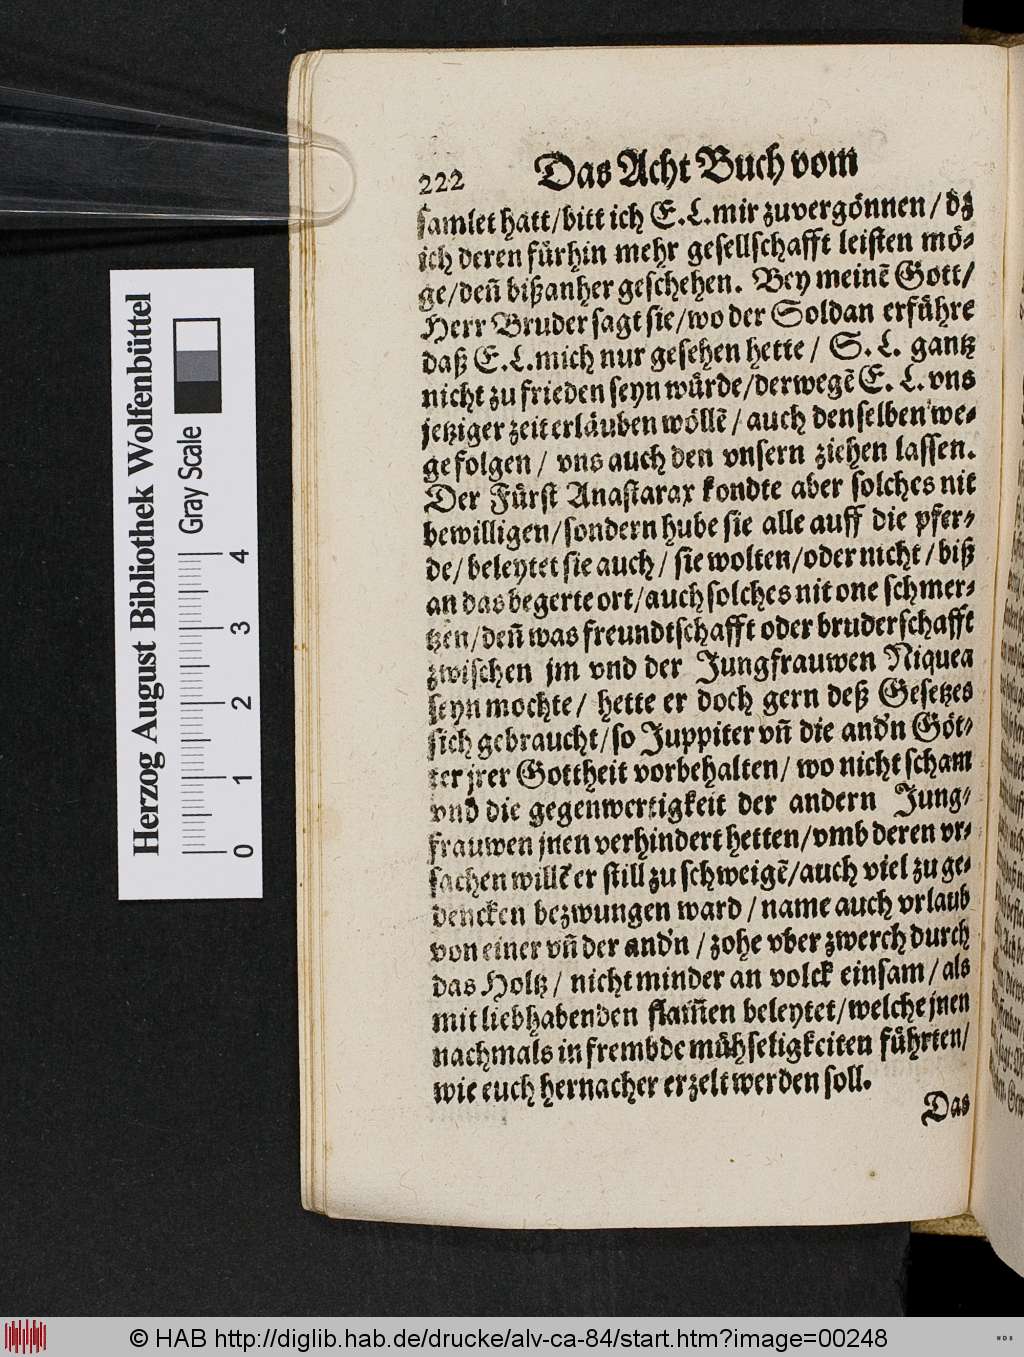 222 Das Acht Buch vom
samlet hatt/bitt ich E.L.mir zuvergönnen/dz
ich deren fürhin mehr gesellschafft leisten mö-
ge/deñ bißanher geschehen. Bey meinẽ Gott/
Herr Bruder sagt sie/wo der Soldan erführe
daß E.L.mich nur gesehen hette/ S.L. gantz
nicht zu frieden seyn würde/derwegẽ E.L.vns
jetziger zeit erläuben wöllẽ/auch denselben we-
ge folgen/ vns auch den vnsern ziehen lassen.
Der Fürst Anastarax kondte aber solches nit
bewilligen/sondern hube sie alle auff die pfer-
de/beleytet sie auch/ sie wolten/oder nicht/biß
an das begerte ort/auch solches nit one schmer-
tzen/deñ was freundtschafft oder bruderschafft
zwischen jm vnd der Jungfrauwen Niquea
seyn mochte/ hette er doch gern deß Gesetzes
sich gebraucht/so Juppiter vñ die and'n Göt-
ter jrer Gottheit vorbehalten/ wo nicht scham
vnd die gegenwertigkeit der andern Jung-
frauwen jnen verhindert hetten/vmb deren vr-
sachen willẽ er still zu schweigẽ/auch viel zu ge-
dencken bezwungen ward/name auch vrlaub
von einer vñ der and'n/zohe vber zwerch durch
das Holtz/ nicht minder an volck einsam/als
mit liebhabenden flam̃en beleytet/welche jnen
nachmals in frembde mühseligkeiten führten/
wie euch hernacher erzelt werden soll.
Das
Herzog August Bibliothek Wolfenbüttel
Gray Scale
0 1 2 3 4
© HAB http://diglib.hab.de/drucke/alv-ca-84/start.htm?image=00248